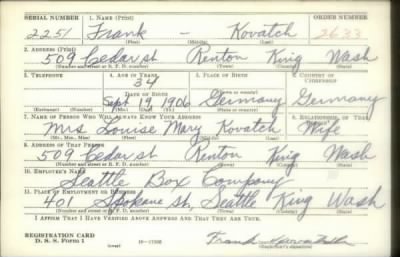 SERIAL NUMBER 1. NAME (Print) ORDER NUMBER
2251 Frank - Kovatch 2633
(First) (Middle) (Last)
2. ADDRESS (Print)
509 Cedar st Renton King Wash
(Number and street or R. F. D. number) (Town) (County) (State)
3. TELEPHONE 4. AGE IN YEARS 5. PLACE OF BIRTH 6. COUNTRY OF CITIZENSHIP
34
Sept 19, 1906 Germany Germany
(Exchange) (Number) (Mo.) (Day) (Yr.) (State or country)
7. NAME OF PERSON WHO WILL ALWAYS KNOW YOUR ADDRESS 8. RELATIONSHIP OF THAT PERSON
Mrs Louise Mary Kovatch Wife
(Mr., Mrs., Miss) (First) (Middle) (Last)
9. ADDRESS OF THAT PERSON
509 Cedar st Renton King Wash
(Number and street or R. F. D. number) (Town) (County) (State)
10. EMPLOYER'S NAME
Seattle Box Company
11. PLACE OF EMPLOYMENT OR BUSINESS
401 Spokane st, Seattle King Wash
(Number and street or R. F. D. number) (Town) (County) (State)
I AFFIRM THAT I HAVE VERIFIED ABOVE ANSWERS AND THAT THEY ARE TRUE.
REGISTRATION CARD
D. S. S. Form 1 (over) 16-17105 Frank Kovatch
(Registrant's signature)